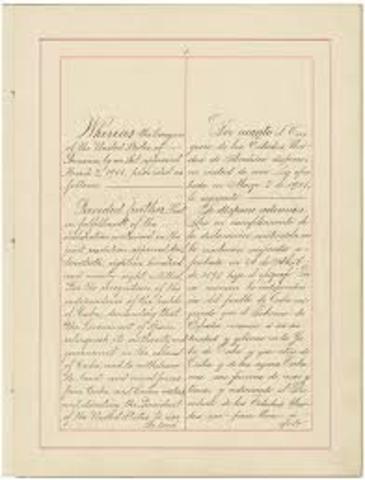 Whereas the Congress
of the United States of
America, by an Act approved
March 2, 1901, provided as
follows:
Provided further, That
in fulfillment of the
declaration contained in the
joint resolution approved April
twentieth, eighteen hundred
and ninety-eight, entitled
"For the recognition of the
independence of the people of
Cuba, demanding that
the Government of Spain
relinquish its authority and
government in the island
of Cuba, and to withdraw
its land and naval forces
from Cuba and Cuban waters,
and directing the President
of the United States to use
the land
Por cuanto el Con-
greso de los Estados Uni-
dos de América dispuso,
en virtud de una Ley apro-
bada en Marzo 2 de 1901,
lo siguiente:
Se dispone además,
Que en cumplimiento de
la declaración contenida en
la resolución conjunta a-
probada en 20 de Abril
de 1898
la independen-
cia del pueblo de Cuba
que el Gobierno de
España renuncie a su au-
toridad y gobierno en la Is-
la de Cuba y que retire de
Cuba y de las aguas Cuba-
nas sus fuerzas de mar y
tierra y ordenando al Pre-
sidente de los Estados Uni-
dos que